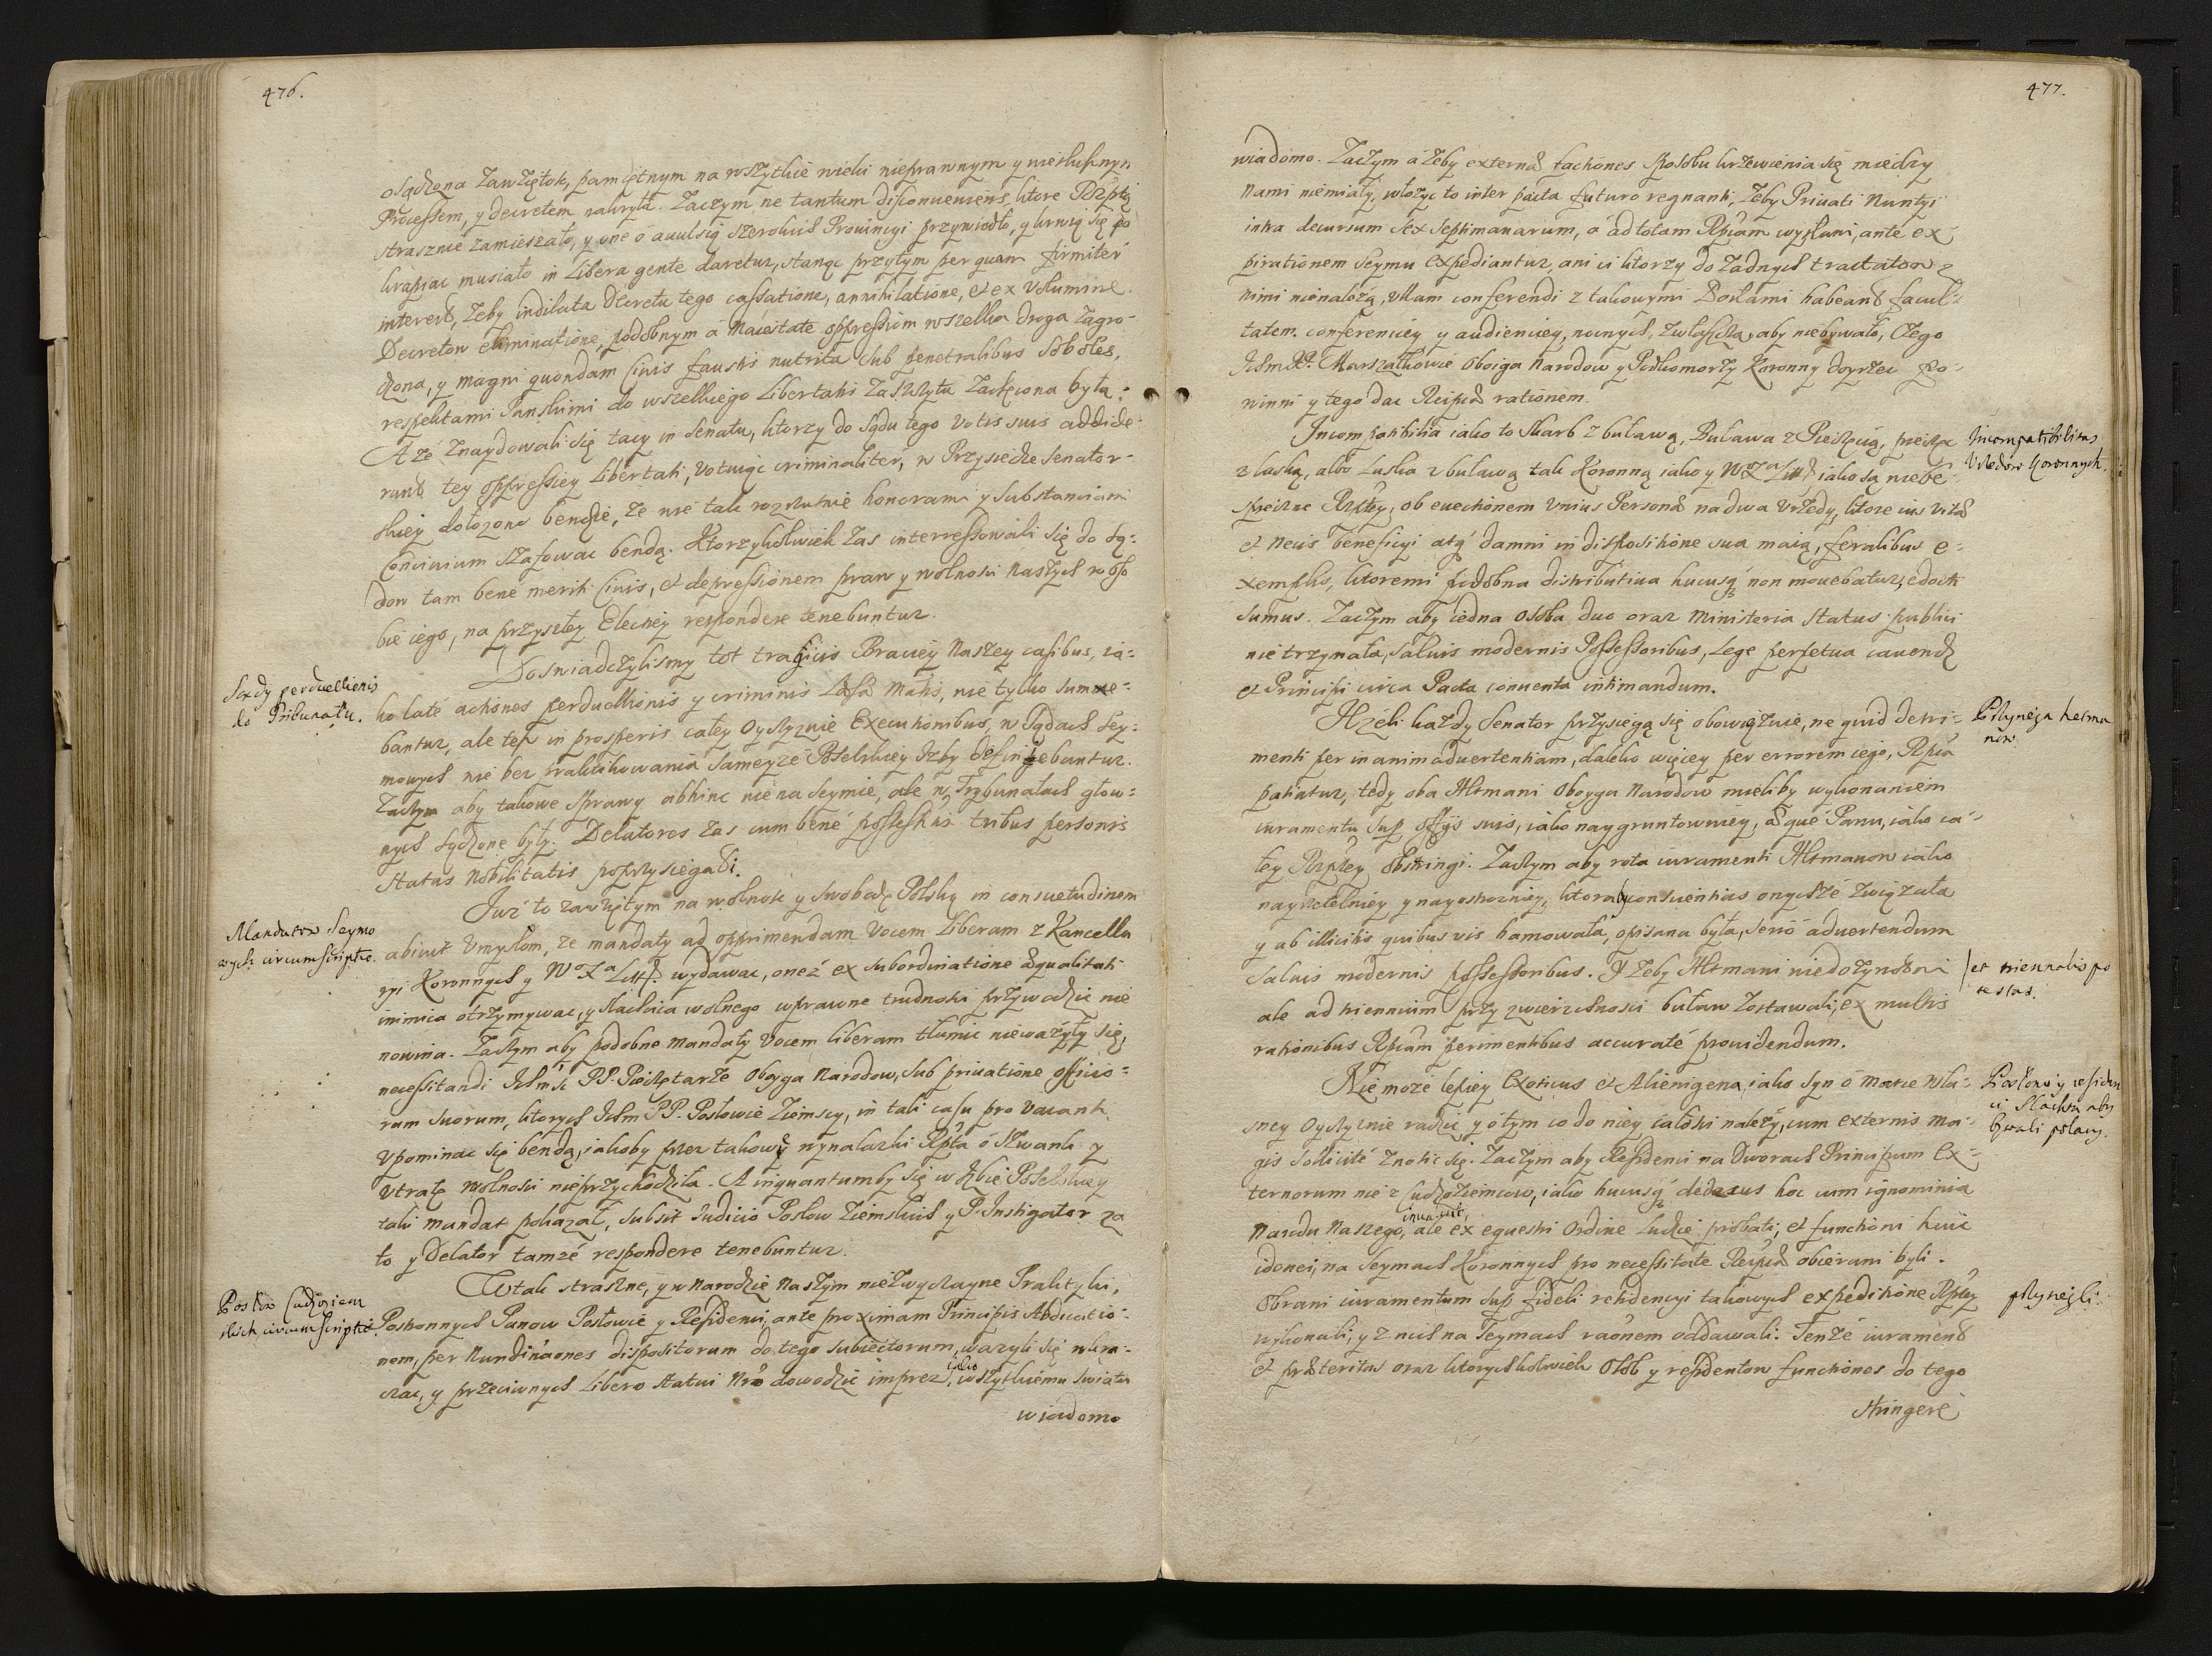 476.
osądzona zawziętok, pamiętnym na wszytkie wieki nieprawnym y niesłusznym
Processem, y decretem nakryta. Zaczym ne tantum disconueniens, ktore Rzptą
strasznie zamieszało, y one o auulsią szerokich Prouincyi przywiodło, y krwią się po
krapiac musiało in Libera gente daretur, stanąc przytym per quam firmiter
interest, żeby indilata decretu tego cassatione, annihilatione, et ex Volumine
Decretow eliminatione, podobnym a Maiestate oppressiom wszelka droga zagro-
dzona, y magni quondam Ciuis faustis nutrita sub penetralibus soboles,
respektami Panskimi do wszelkiego Libertatis zaszczytu zachęcona była.
A że znaydowali się tacy in Senatu, ktorzy do sądu tego votis suis addide-
runt tey oppressiey Libertati, votuiąc criminaliter, w Przysiedze Senator-
skiey dołozono bendzie, że nie tak rozrzutnie honorami y substanciami
Conciuium szafowac bendą. Ktorzykolwiek zas interressowali się do są-
dow tam bene meriti Ciuis, et depressionem praw y wolnosci naszych w oso
bie iego, na przyszłey Elekciey respondere tenebuntur.
Sądy perduellionis
do Tribunału.
Doswiadczylismy tot tragicis Braciey Naszey casibus, ia-
ko late actiones perduellionis y criminis Læsæ Mattis, nie tylko summe-
bantur, ale też in prosperis całey Oyczyznie Executionibus, w Sądach Sey-
mowych nie bez praktikowania sameyże Poselskiey Izby definiebantur.
Zaczym aby takowe sprawy abhinc nie na Seymie, ale w Trybunałach głow-
nych sądzone były. Delatores zas cum bene possessatis tribus personis
status Nobilitatis poprzysięgali.
Mandatow Seymo
wych circumscriptio.
Już to zawziętym na wolnosc y swobodę Polską in consuetudinem
abiuit Vmysłom, że mandaty ad opprimendam Vocem Liberam z Kancella
ryi Koronnych y W° X° Litt° wydawac, onez ex subordinatione æqualitati
inimica otrzymywac, y szlachcica wolnego wprawne trudnosci przywodzic nie
nowina. Zaczym aby podobne mandaty Vocem liberam tłumic nieważyły się,
necessitandi Ichmsc PP. Pieczętarze Oboyga Narodow, sub priuatione officio-
rum suorum, ktorych Ichm PP. Posłowie Ziemscy, in tali casu pro vacanti
Vpominac się bendą, iakoby przez takowe wynalazki Rzpta o szwank y
Vtratę Wolnosci nieprzychodziła. A inquantumby się w Izbie Poselskiey
taki mandat pokazał, subsit Iudicio Posłow Ziemskich y P. Instigator za
to y Delator tamże respondere tenebuntur.
Posłow Cudzoziem
skich circumscriptio.
Co tak straszne, y w Narodzie Naszym niezwyczayne Praktyki,
Postronnych Panow Posłowie y Residenci, ante proximam Principis Abdicatio-
nem, per Nundinaones dispositorum do tego subiectorum, ważyli się wkra-
czac, y przeciwnych Libero statui Nro dowodzic imprez, iako wszytkiemu swiatu
wiadomo
477.
wiadomo. Zaczym ażeby externæ factiones sposobu krzewienia się miedzy
nami niemiały, włożyc to inter pacta futuro regnanti, żeby Priuati Nuntyi
intra decursum sex septimanarum, a ad totam Rpcam wysłani, ante ex-
pirationem Seymu expediantur, ani ci ktorzy do żadnych tractatow z
nimi nienależą, vllam conferendi z takowymi Posłami habeant facul-
tatem. conferenciey y audienciey, nocnych, zwłaszcza, aby niebywało, czego
Ichm PP. Marszałkowie Oboiga Narodow y Podkomorzy Koronny doyrzec po-
winni y tego dac Reipcæ rationem.
Incompatibilia iako to Skarb z buławą, Buława z Pieczęcią, pieczęc
z laską, albo Laska z buławą tak Koronną iako y W°X° Litt° iako są niebe-
spieczne Rzptey, ob euectionem vnius Personæ na dwa Vrzędy, ktore ius vitæ
et necis beneficyi atq damni in dispositione sua maią, feralibus e-
xemplis, ktoremi podobna distributiua hucusq non mouebatur, edocti
sumus. Zaczym aby iedna osoba duo oraz ministeria status publici
nie trzymała, saluis modernis Possessoribus, Lege perpetua cauend
et Principi circa Pacta conuenta intimandum.
Incompatibilitas
Vrzedow Koronnych.
Jżeli każdy Senator przysięgą się obowiązuie, ne quid detri-
menti per inanimaduertentiam, daleko więcey per errorem iego, Rpca
patiatur, tedy oba Htmani Oboyga Narodow mieliby wykonaniem
iuramentu sup offijs suis, iako naygruntowniey, æque Panu, iako ca-
łey Rzptey obstringi. Zaczym aby rota iuramenti Htmanow iako
nayrzetelniey y nayostrozniey, ktoraby conscientias onychże związała
y ab illicitis quibusvis hamowała, opisana była, serio aduertendum
saluis modernis possessoribus. Y żeby Htmani niedożywotni
ale ad triennium przy zwierzchnosci buław zostawali, ex multis
rationibus Rpcam perimentibus accurate prouidendum.
Przysięga hetma
now
et triennalis po
testas.
Nie może lepiey Exoticus et Alienigena, iako syn o matce wła-
sney Oyczyznie radzic y otym co do niey całosci należy, cum externis ma-
gis sollicite znosic się. Zaczym aby Residenci na Dworach Principum Ex-
ternorum nie z Cudzoziemcow, iako hucusq dedecus hoc cum ignominia
Narodu Naszego inualuit, ale ex equestri Ordine Ludzie probati, et functioni huic
idonei, na Seymach Koronnych pro necessitate Reipcæ obierani byli.
Obrani iuramentum sup fideli residencyi takowych expeditione Rzptey
wykonali, y z nich na Seymach raonem oddawali. Tenże iurament
et præteritas oraz ktorychkolwiek Osob y residentow functiones do tego
Posłowie y residen
ci Slachta aby
bywali polscy.
przysięgli.
stringere